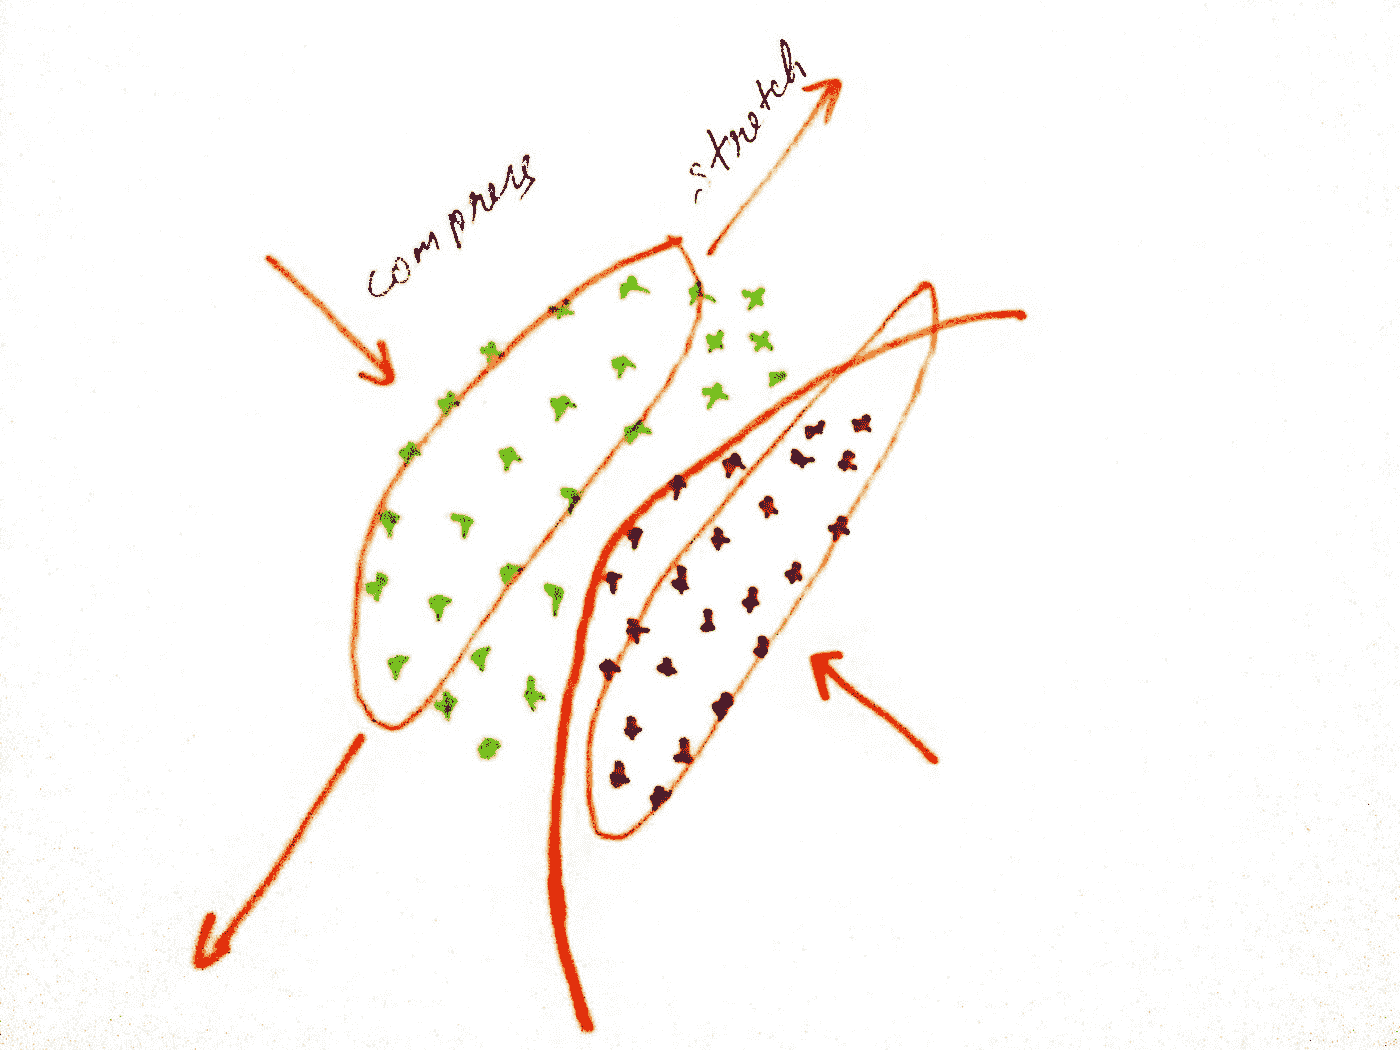 compress
stretch